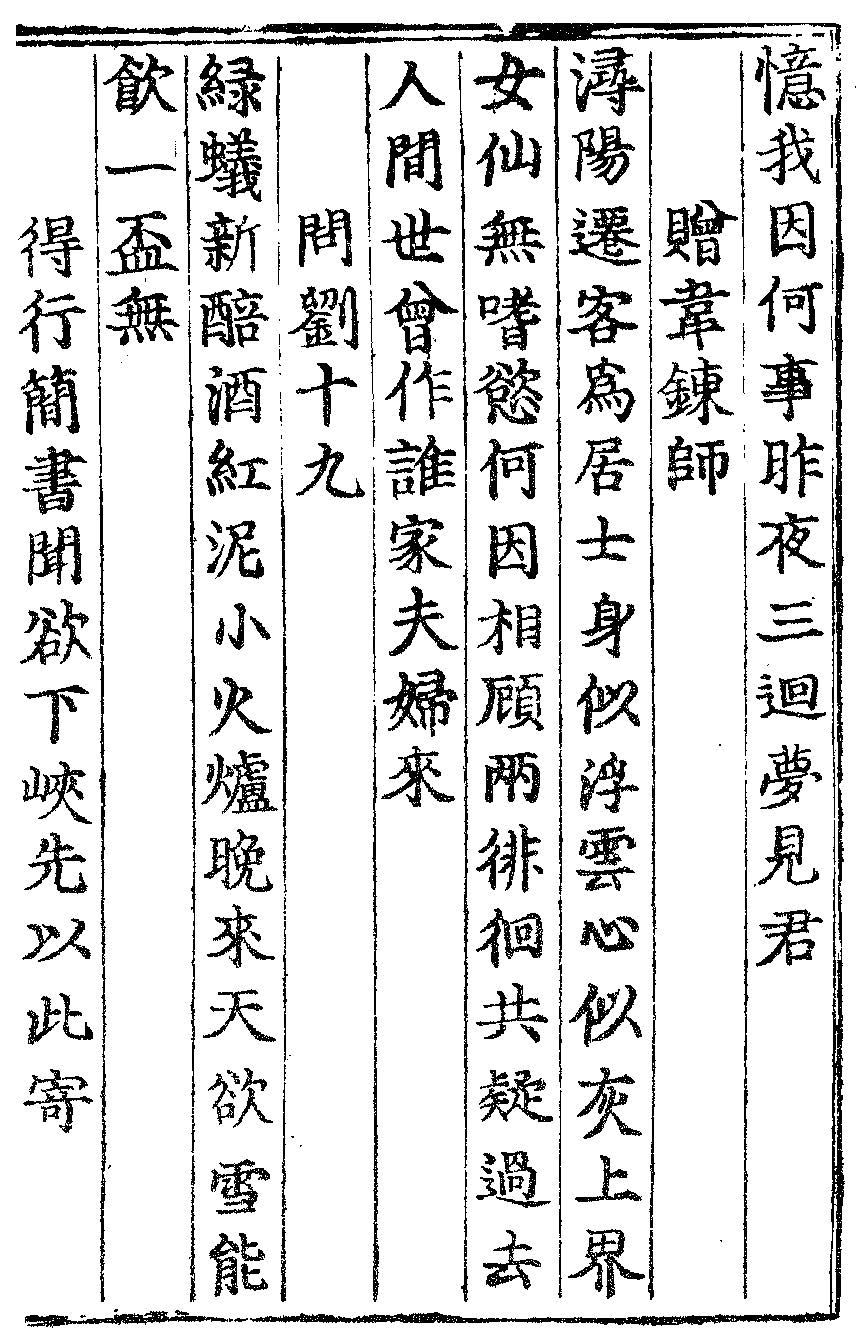 憶我因何事昨夜三迴夢見君
贈韋鍊師
潯陽遷客爲居士身似浮雲心似灰上界
女仙無嗜慾何因相顧兩徘徊共疑過去
人間世曾作誰家夫婦來
問劉十九
綠蟻新醅酒紅泥小火爐晚來天欲雪能
飲一盃無
得行簡書聞欲下峽先以此寄